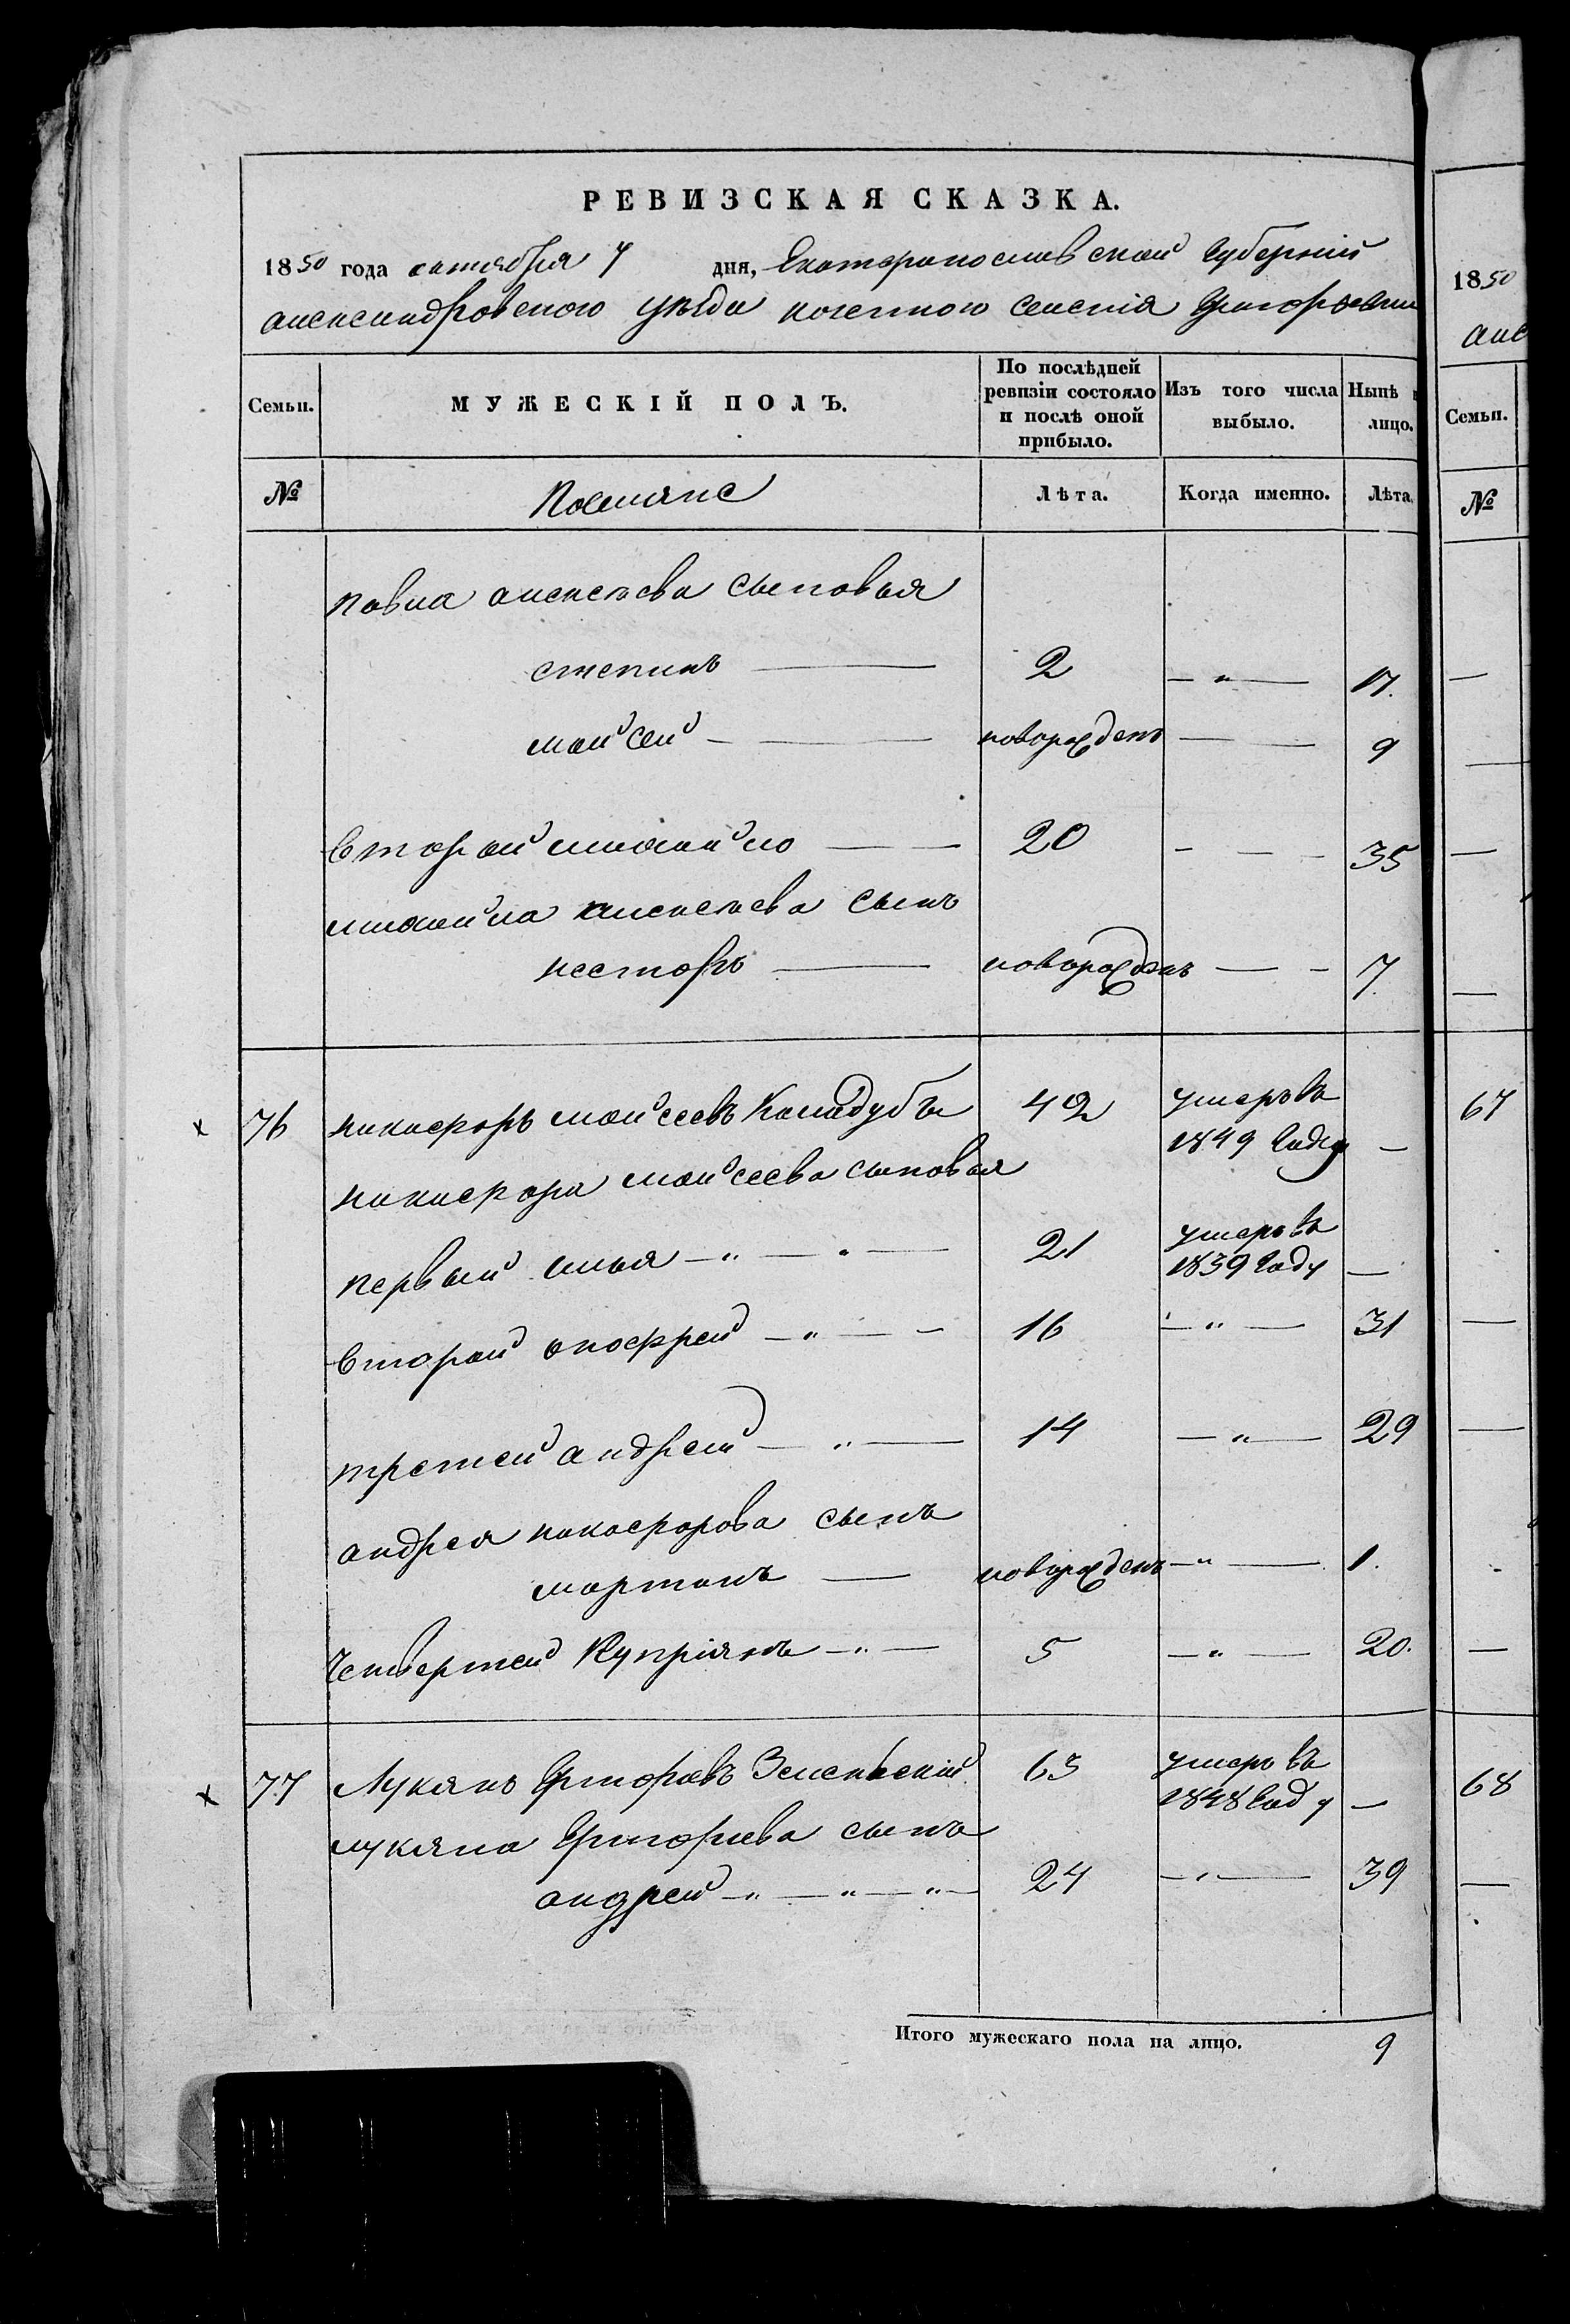 РЕВИЗСКАЯ СКАЗКА.
1850 года октября 7 дня, Екатеринославской Губерніи
александровского уезда казенного селенія Григорьевки
Семьи. МУЖЕСКІЙ ПОЛЪ. По послѣдней ревизіи состояло и послѣ оной прибыло. Изъ того числа выбыло. Нынѣ лицо.
№ Поселяне Лѣта. Когда именно. Лѣта.
павла алексѣева сыновья
степанъ — 2 — " — 17.
мойсей — новорожденъ — 9
второй михайло — 20 — — — 35
михайла алексѣева сынъ
несторъ — новорожденъ — — 7.
76 никифоръ мойсеевъ Колидубъ 42 умеръ въ 1849 Году —
никифора мойсеева сыновья
первый илья — " — " — 21 умеръ въ 1839 Году —
второй онофрей — " — — 16 — " — 31
третей андрей — " — 14 — " — 29
андрея никифорова сынъ
мартинъ — новорожденъ — " — 1.
Четвертей Купріянъ — " — 5 — " — 20.
77 Лукянъ Григорьевъ Зеленьскій 63 умеръ въ 1848 Году —
лукяна Григорьева сынъ
андрей — " — " — " — 24 — " — 39
Итого мужескаго пола на лицо. 9
1850
алс
Семьи.
№
67
68